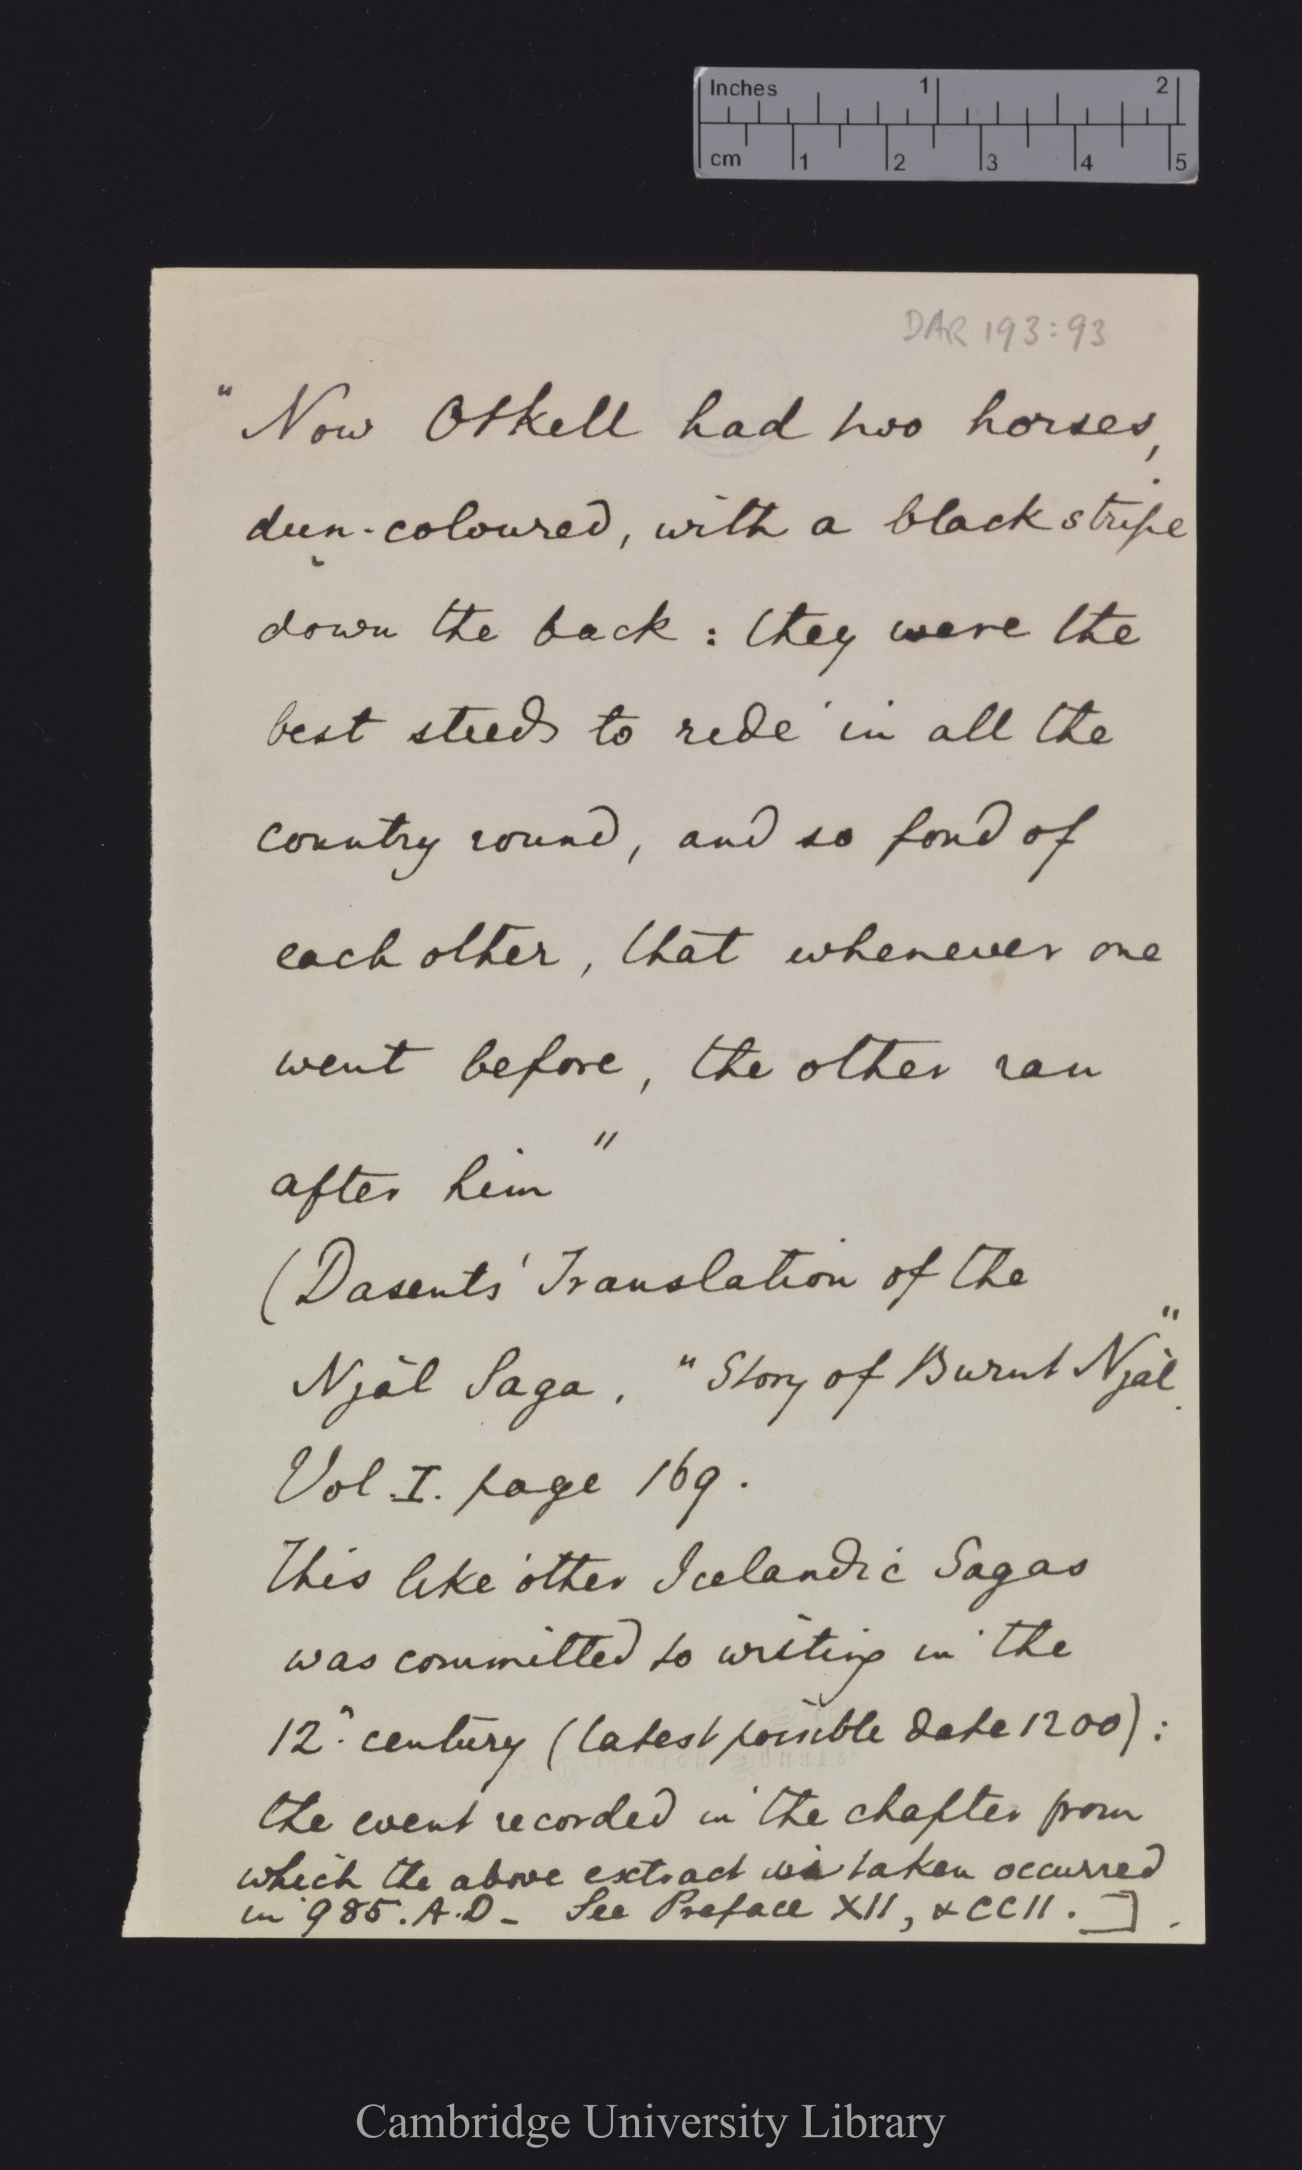 Inches 1 2
cm 1 2 3 4 5
DAR 193:93
"Now Otkell had two horses,
dun-coloured, with a black stripe
down the back : they were the
best steeds to ride in all the
country round, and so fond of
each other, that whenever one
went before, the other ran
after him"
(Dasents' Translation of the
Njál Saga. "Story of Burnt Njál"
Vol. I. page 169.
This like other Icelandic Sagas
was committed to writing in the
12th century (latest possible date 1200):
the event recorded in the chapter from
which the above extract is taken occurred
in 985. A.D - See Preface XII, & CCII. ] .
Cambridge University Library